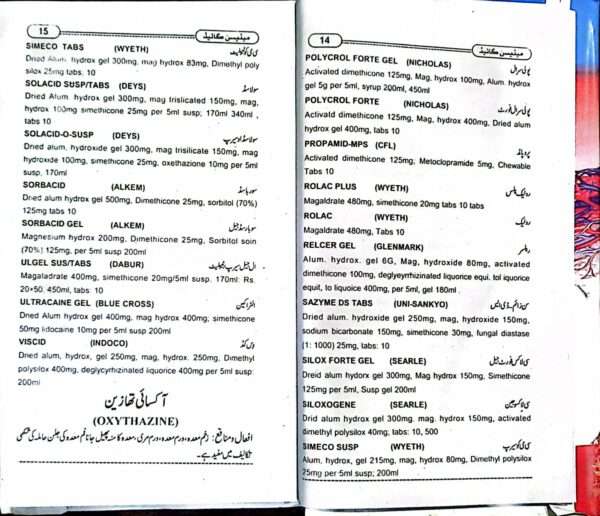 14
میڈیسن گائیڈ
POLYCROL FORTE GEL (NICHOLAS) پولی کرال
Activaled dimethicone 125mg, Mag, hydrox 100mg, Alum. hydrox
gel 5g per 5ml, syrup 200ml, 450ml
POLYCROL FORTE (NICHOLAS) پولی کرال فورٹ
Activald dimethicone 125mg, Mag, hydrox 400mg, Dried alum
hydrox gel 400mg, tabs 10
PROPAMID-MPS (CFL)
Activaled dimethicone 125mg, Metoclopramide 5mg, Chewable
Tabs 10
ROLAC PLUS (WYETH) رولیک پلس
Magaldrate 480mg, simethicone 20mg tabs 10 tabs
ROLAC (WYETH) رولیک
Magaldrate 480mg, Tabs 10
RELCER GEL (GLENMARK) ریلسر
Alum. hydrox. gel 6G, Mag, hydroxide 80mg, activaled
dimethicone 100mg, deglyeyrhizinated liquorice equi. tol iquorice
equit, to liquoice 400mg, per 5ml, gel 180ml .
SAZYME DS TABS (UNI-SANKYO)
Dried alum. hydroxide gel 250mg, mag, hydroxide 150mg,
sodium bicarbonate 150mg, simethicone 30mg, fungal diastase
(1: 1000) 25mg, tabs: 10
SILOX FORTE GEL (SEARLE) سی لاکس فورٹ جیل
Dreid alum hydorx gel 300mg, Mag hydrox 150mg, Simethicone
125mg per 5ml, Susp gel 200ml
SILOXOGENE (SEARLE) سی لاکسوجین
Drid alum hydrox gel 300mg. mag. hydrox 150mg, activaled
dimethyl polysilox 40mg; tabs: 10, 500
SIMECO SUSP (WYETH) سی می کو سیرپ
Alum, hydrox, gel 215mg, mag, hydrox 80mg, Dimethyl polysilox
25mg per 5ml susp; 200ml
15
میڈیسن گائیڈ
SIMECO TABS (WYETH) سی می کو ٹیبلیٹ
Dried Alum. hydrox gel 300mg, mag hydrox 83mg, Dimethyl poly
silox 25mg tabs. 10
SOLACID SUSP/TABS (DEYS) سولاسڈ
Dried Alum, hydrox gel 300mg, mag trislicated 150mg, mag,
hydrox 100mg simethicone 25mg per 5ml susp; 170ml 340ml ,
tabs 10
SOLACID-O-SUSP (DEYS) سولاسڈ او سیرپ
Dned alum, hydroxide gel 300mg, mag trisilicate 150mg, mag
hydroxide 100mg, simethicone 25mg, oxethazione 10mg per 5ml
susp, 170ml
SORBACID (ALKEM) سوربا سڈ
Dried alum hydrox gel 500mg, Dimethicone 25mg, sorbitol (70%)
125mg tabs 10
SORBACID GEL (ALKEM) سوربا سڈ جیل
Magnesium hydrox 200mg, Dimethicone 25mg, Sorbitol soin
(70%) 125mg, per 5ml susp 200ml
ULGEL SUS/TABS (DABUR) ال جیل سیرپ ٹیبلیٹ
Magaladrate 400mg, simethicone 20mg/5ml susp. 170ml: Rs.
20×50. 450ml, tabs: 10
ULTRACAINE GEL (BLUE CROSS) الٹراکین
Dned Alum hydrox gel 400mg, mag hydrox 400mg; simethicone
50mg lidocaine 10mg per 5ml susp 200ml
VISCID (INDOCO) وی کڈ
Dned alum, hydrox, gel 250mg, mag, hydrox. 250mg, Dimethyl
polysilox 400mg, deglycyrhizinated liquorice 400mg per 5ml susp:
200ml
آکسائی تھازین
(OXYTHAZINE)
افعال و منافع : زخم معدہ، درد معدہ، ورم مری، معدہ کا منہ پھیل جانا فم معدہ کی جلن حاملہ کی
تکالیف میں مفید ہے۔